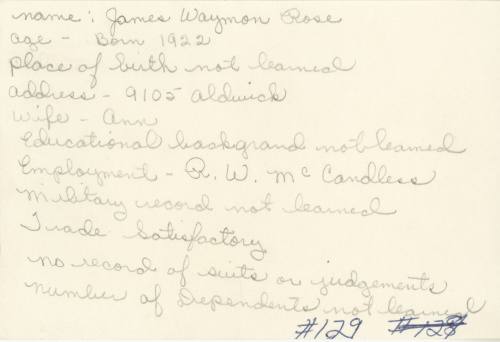 name: James Waymon Rose
age - Born 1922
place of birth not learned
address - 9105 Aldwick
Wife - Ann
Educational backgrand not learned
Employment - R. W. McCandless
Military record not learned
Trade Satisfactory
no record of suits or judgements
number of Dependents not learned
#129 #128